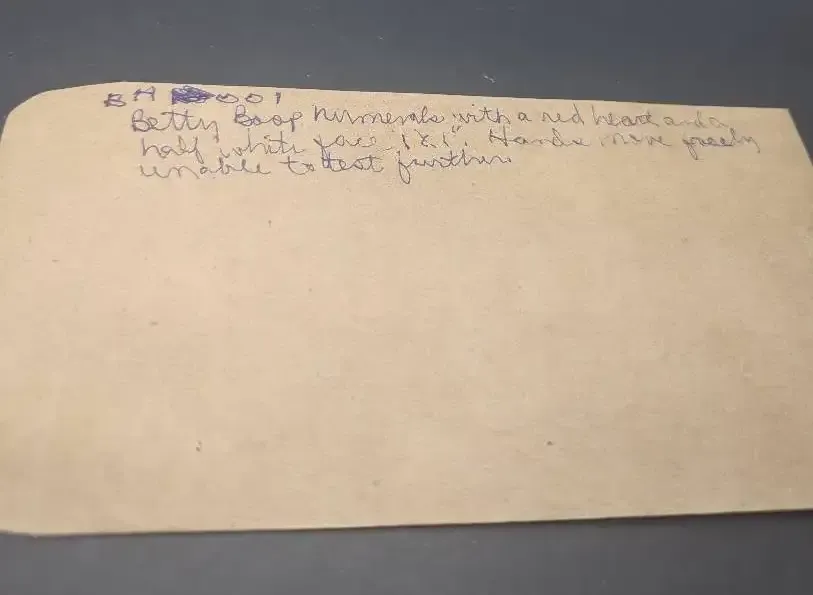 BH 001
Betty Boop Numerals with a red heart and a
half white face 1X1". Hands move freely
unable to test further.